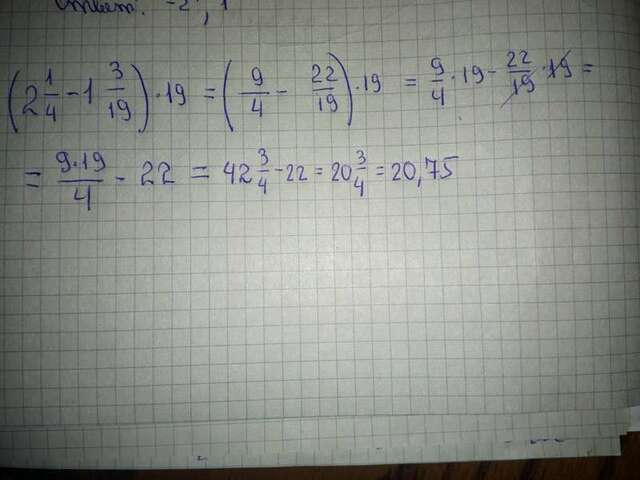 Ответ: -2 , 1
(2 1/4 - 1 3/19) · 19 = (9/4 - 22/19) · 19 = 9/4 · 19 - 22/19 · 19 =
= 9·19/4 - 22 = 42 3/4 - 22 = 20 3/4 = 20,75